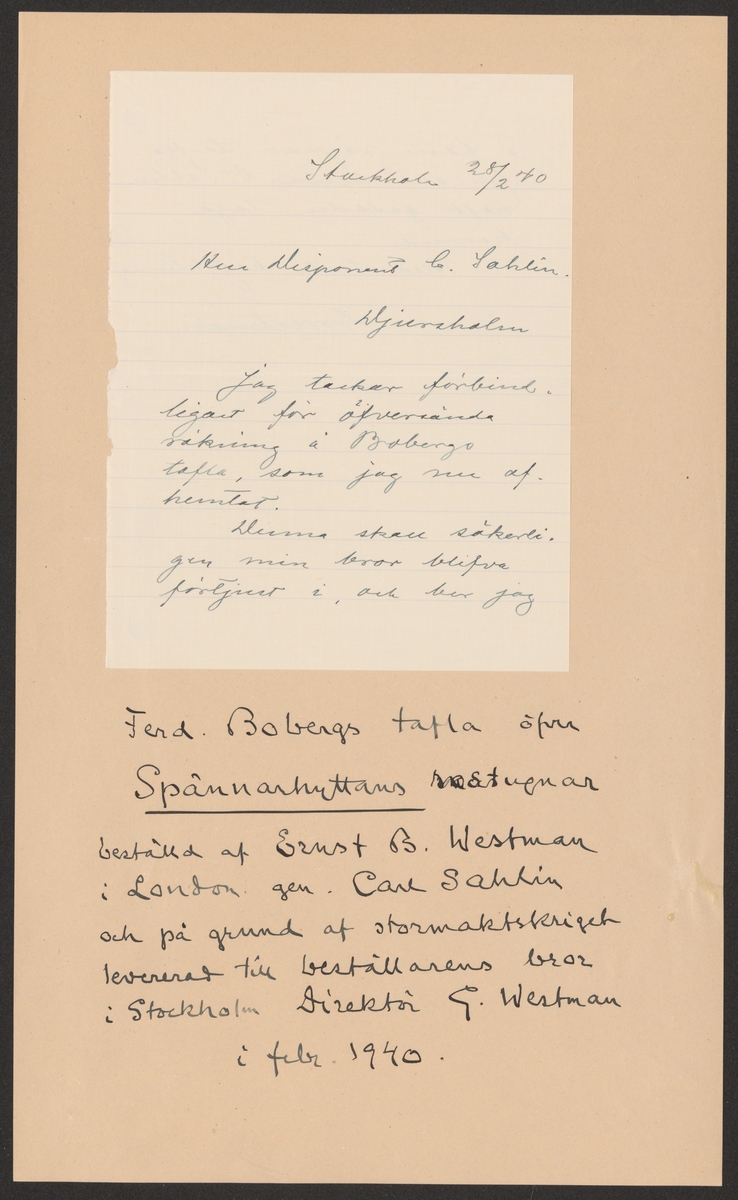 Stockholm 28/2 40
Herr Disponent C. Sahlin.
Djursholm
Jag tackar förbind-
ligast för öfversända
räkning å Bobergs
tafla, som jag nu af-
hemtat.
Denna skall säkerli-
gen min bror blifva
förtjust i, och ber jag
Ferd. Bobergs tafla öfver
Spännarhyttans rostugnar
beställd af Ernst B. Westman
i London gen. Carl Sahlin
och på grund af stormaktskriget
levererad till beställarens bror
i Stockholm Direktör G. Westman
i febr. 1940.